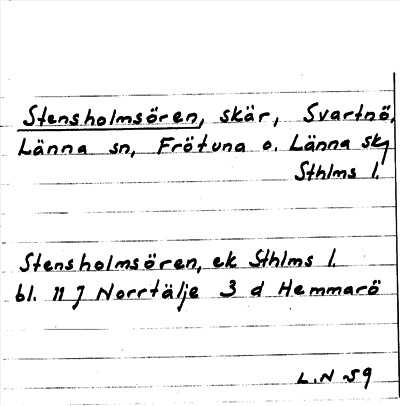 Stensholmsören, skär, Svartnö,
Länna sn, Frötuna o. Länna skg
Sthlms l.
Stensholmsören, ek Sthlms l.
bl. 11 J Norrtälje 3 d Hemmarö
L.N 59